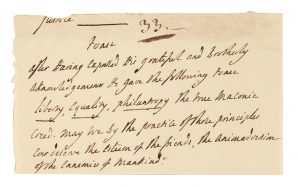 justice
33.
Toast
after Having Expressed His gratefull and Brotherly
Acknowledgements He gave the following Toast
liberty, Equality, philantropy the true Maconic
Creed. may we by the practice of those principles
Ever deserve the Esteem of the friends, the Animadversion
of the Ennemies of Mankind.